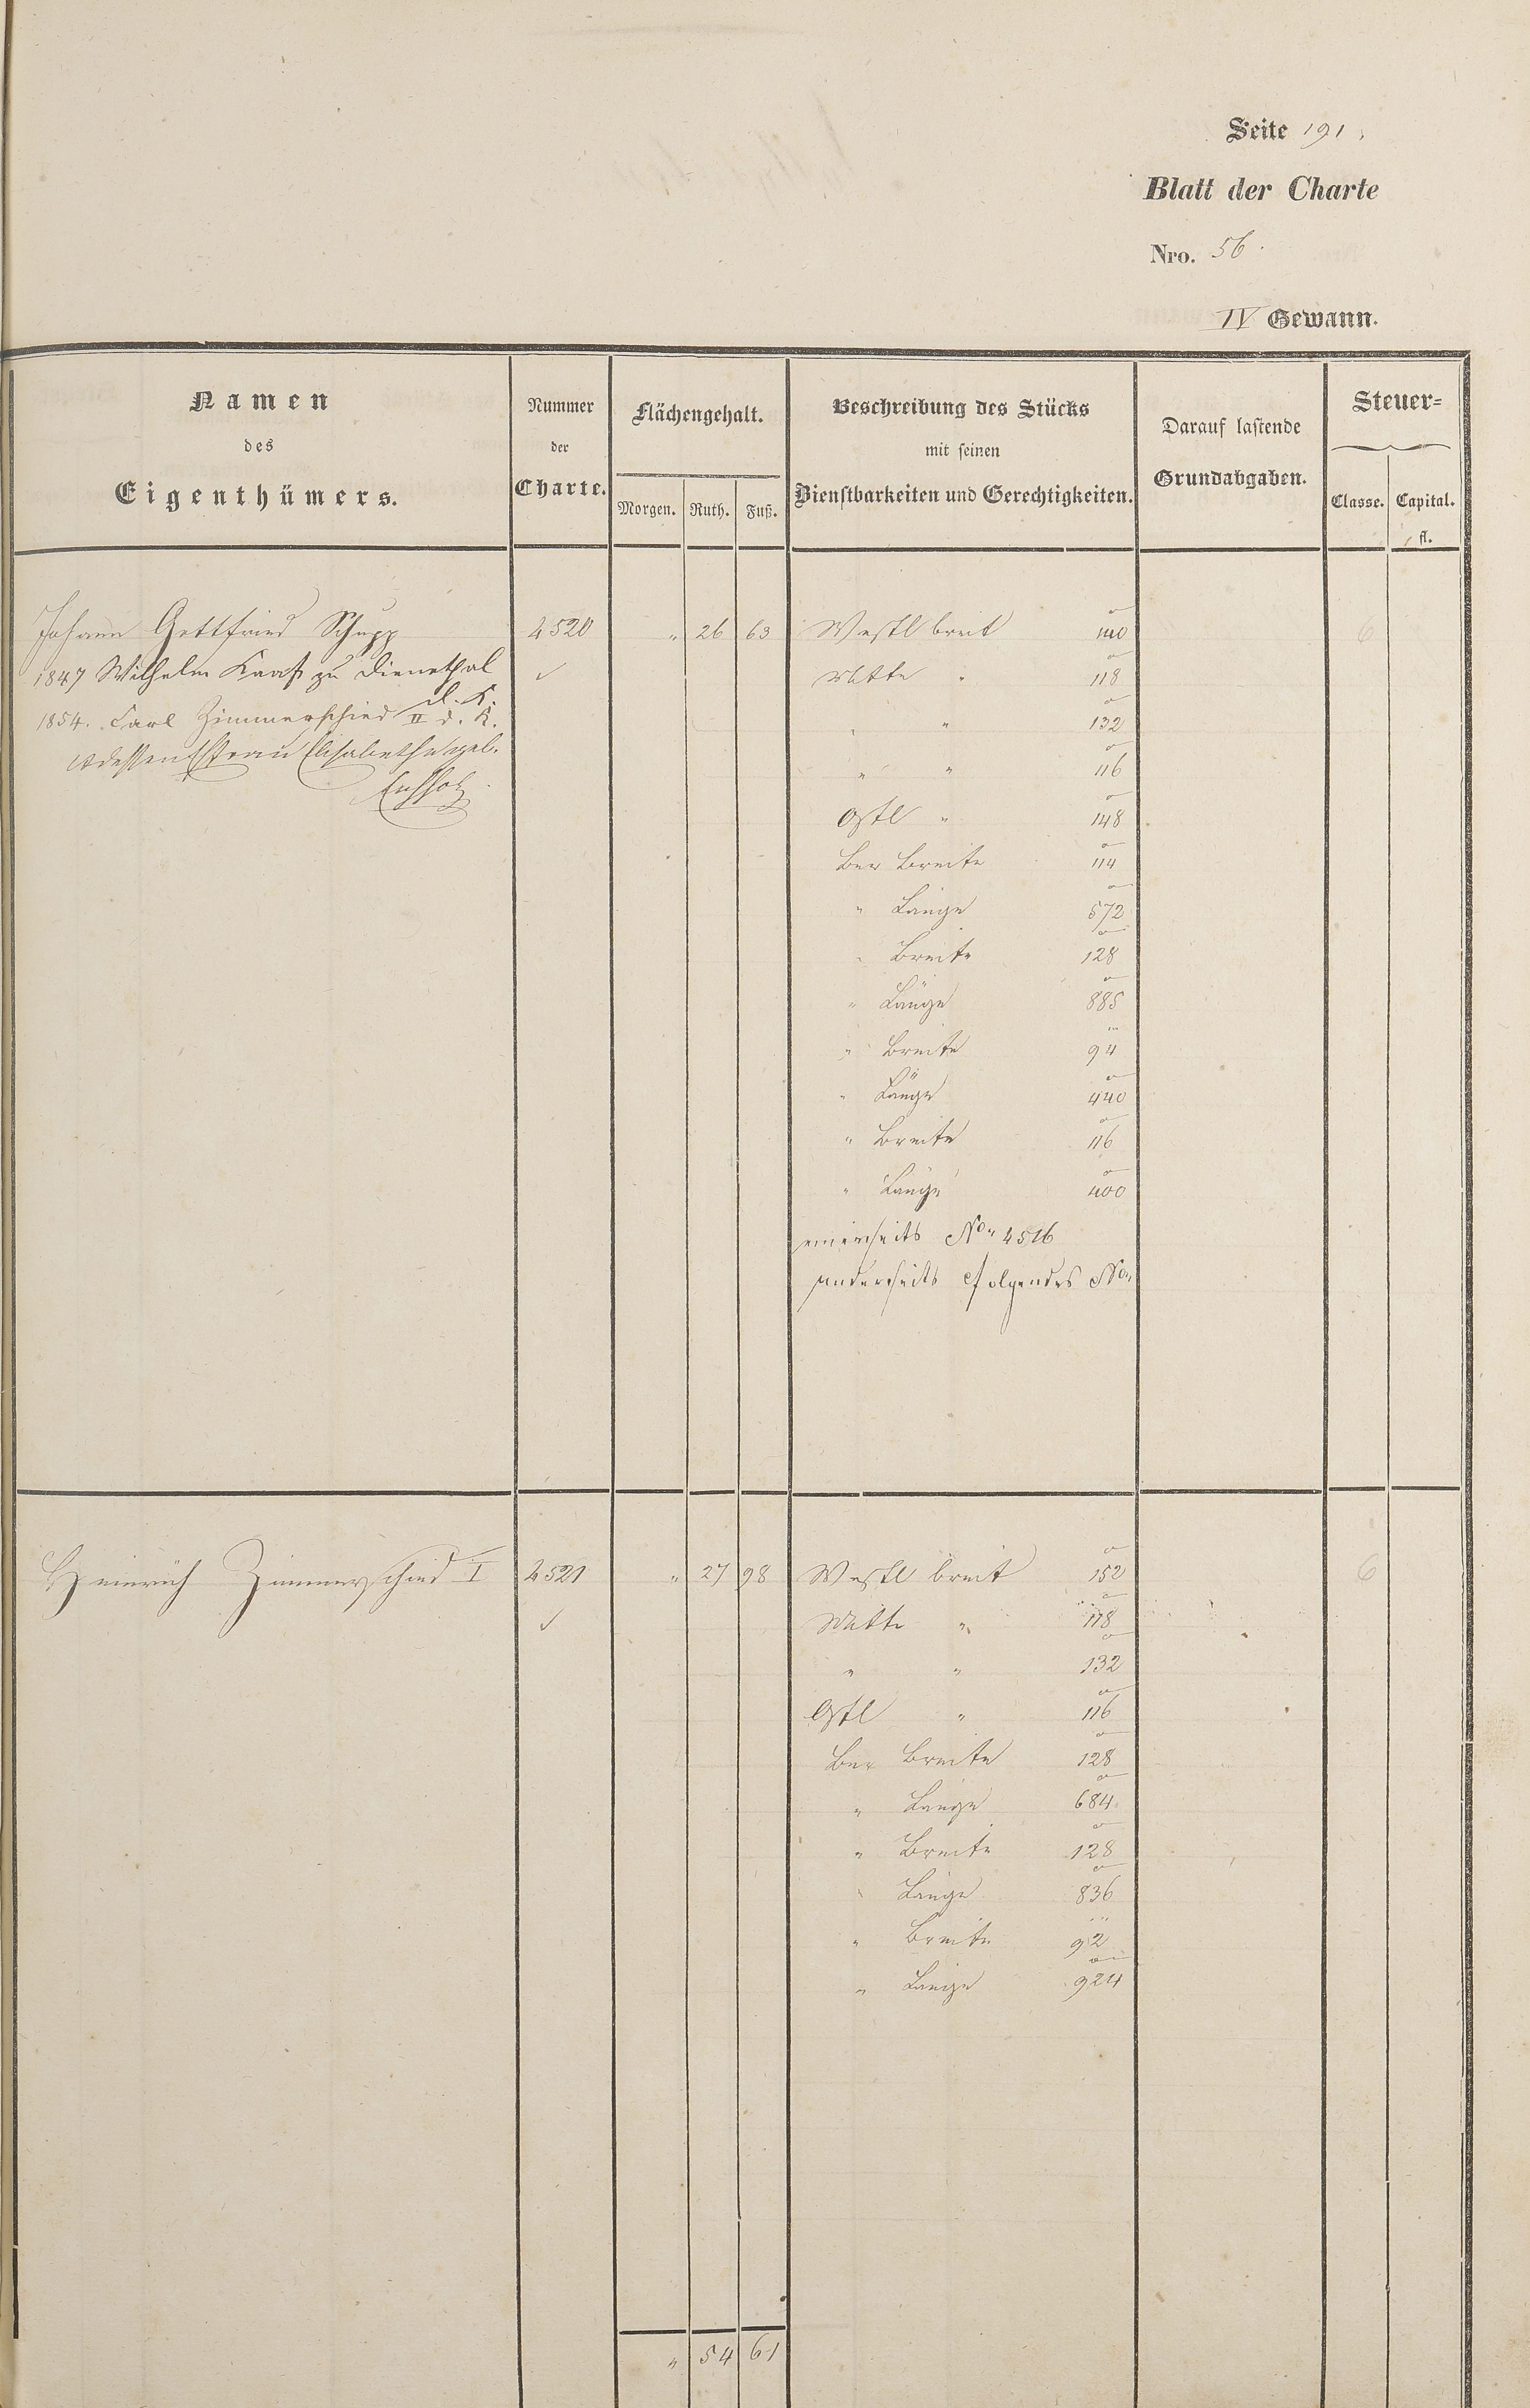 Seite 191.
Blatt der Charte
Nro. 56.
IV Gewann.
Namen
des
Eigenthümers.
Nummer
der
Charte.
Flächengehalt.
Morgen. Ruth. Fuß.
Beschreibung des Stücks
mit seinen
Dienstbarkeiten und Gerechtigkeiten.
Darauf lastende
Grundabgaben.
Steuer=
Classe. Capital.
fl.
Johann Gottfried Schupp 4520 " 26 63 Westl breit 140 6
1847 Wilhelm Kraft zu Dienethal ✓ Mitte " 118
d. K.
1854. Carl Zimmerschied II d. K. " " 132
Elisabetha geb. " " 116
Ostl " 148
Ber Breite 114
" Länge 572
" Breite 128
" Länge 885
" Breite 94
" Länge 440
" Breite 116
" Länge 400
einerseits No. 4516
anderseits folgendes No.
Heinrich Zimmerschied I 4521 " 27 98 Westl breit 152 6
✓ Mitte " 118
" " 132
Ostl " 116
Ber Breite 128
" Länge 684
" Breite 128
" Länge 836
" Breite 92
" Länge 924
" 54 61